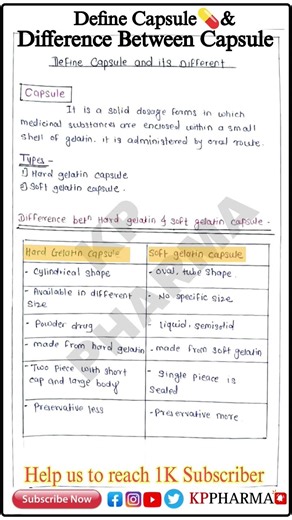 Define Capsule💊&
Difference Between Capsule
Define Capsule and its Different
Capsule
It is a solid dosage forms in which
medicinal substances are enclosed within a small
shell of gelatin. it is administered by oral route.
Types -
1) Hard gelatin capsule
2) Soft gelatin capsule.
Difference betn Hard gelatin & soft gelatin capsule -
Hard Gelatin Capsule
Soft gelatin capsule
- Cylindrical shape
- Oval, tube shape
- Available in different
size
- No specific size
- Powder drug
liquid, semisolid
- made from hard gelatin
- made from soft gelatin
- Two piece with short
cap and large body
- Single pieace is
sealed
- Preservative less
- Preservative more
KP
PHARMA
Help us to reach 1K Subscriber
Subscribe Now
KPPHARMA